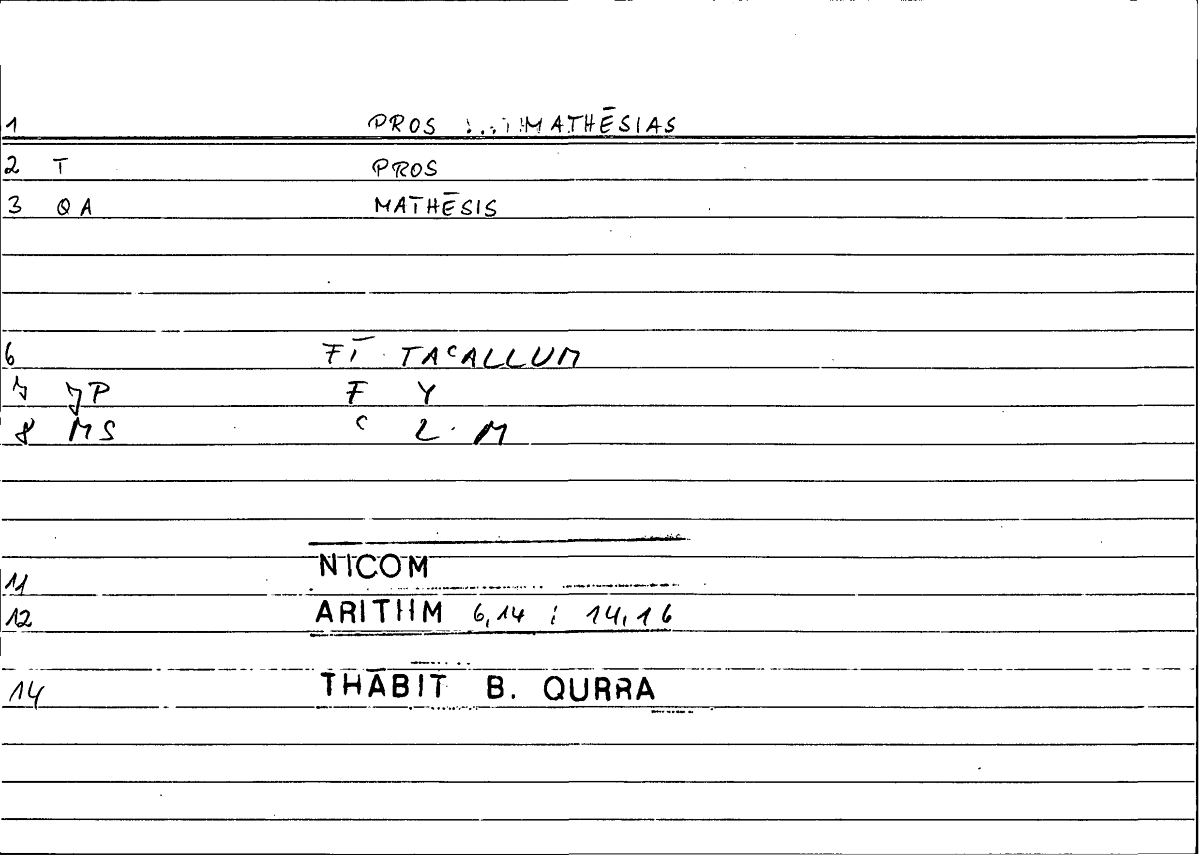 1 PROS MATHĒSIAS
2 T PROS
3 QA MATHĒSIS
6 FĪ TAᶜALLUM
7 JP F Y
8 MS ᶜ L M
NICOM
11
12 ARITHM 6,14 ; 14,16
14 THĀBIT B. QURRA